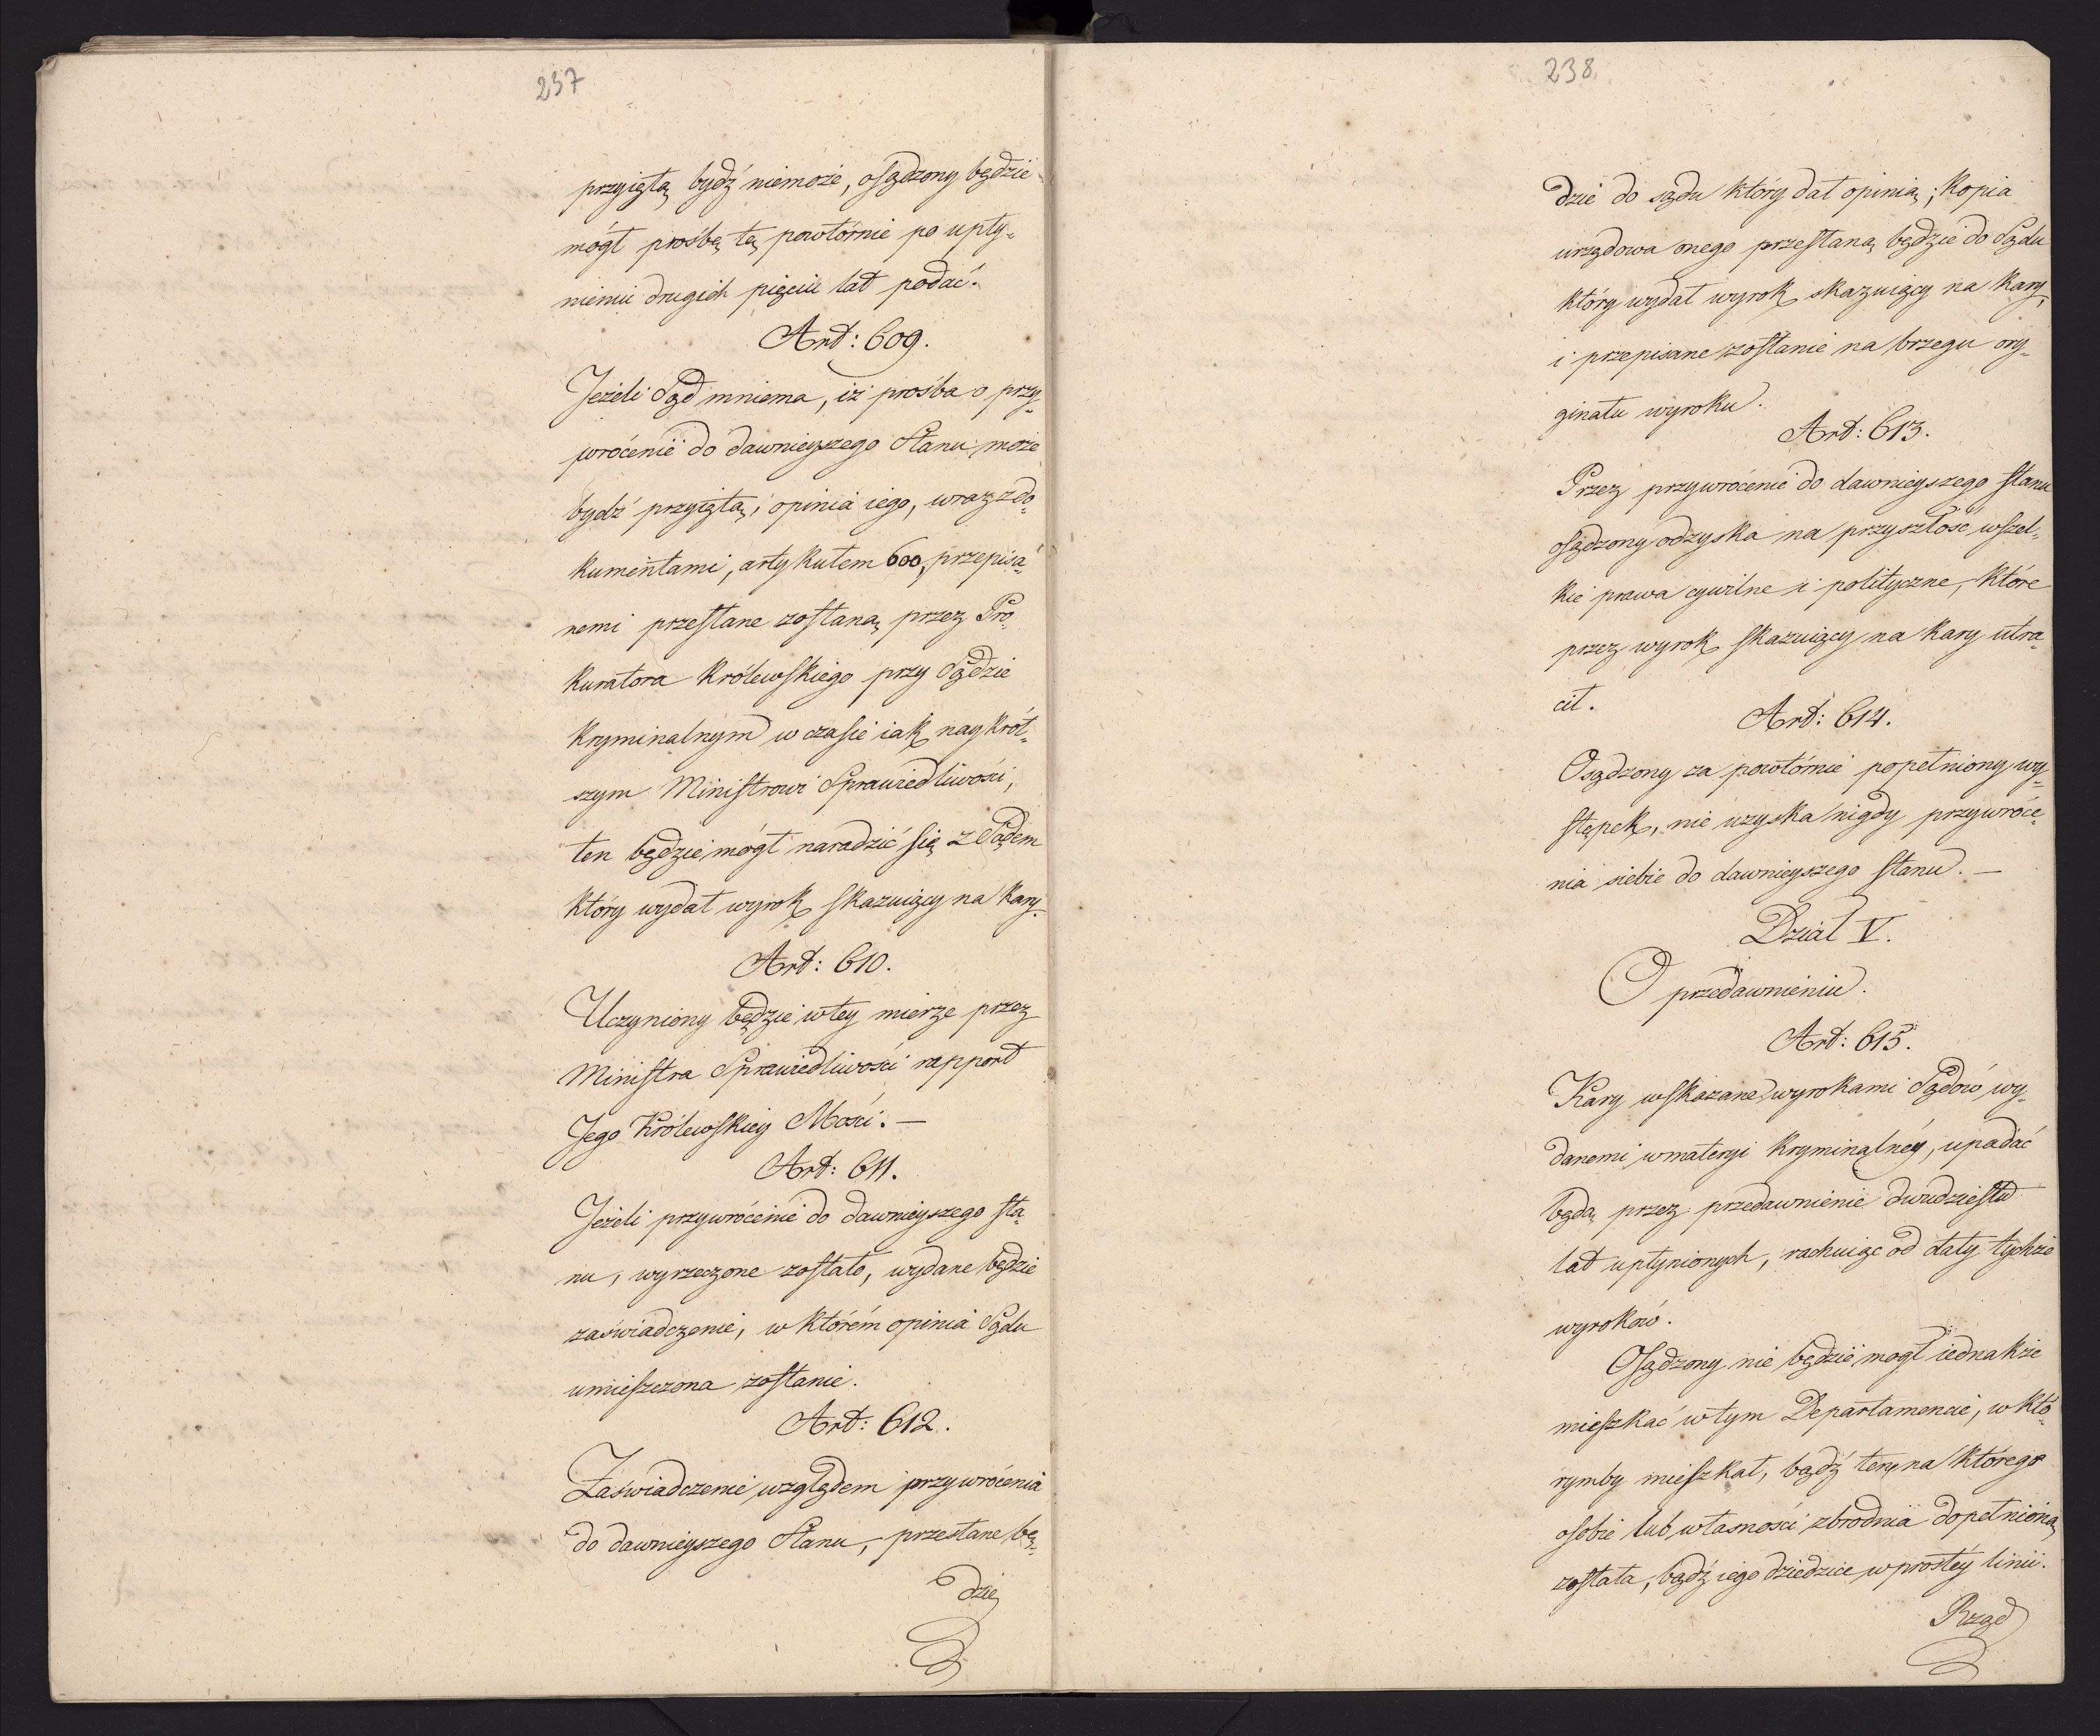 237
przyiętą bydź niemoże, osądzony będzie
mógł prośbę tę powtórnie po upły-
nieniu drugich pięciu lat podać.
Art: 609.
Jeżeli Sąd mniema, iż prośba o przy-
wrócenie do dawnieyszego Stanu może
bydź przyiętą, opinia iego, wraz z do-
kumentami, artykułem 600, przepisa-
nemi przesłane zostaną, przez Pro-
kuratora Królewskiego przy Sądzie
Kryminalnym w czasie iak naykrót-
szym Ministrowi Sprawiedliwości,
ten będzie mógł naradzić się z Sądem
który wydał wyrok skazuiący na kary.
Art: 610.
Uczyniony będzie w tey mierze przez
Ministra Sprawiedliwości rapport
Jego Królewskiey Mości. —
Art: 611.
Jeżeli przywrócenie do dawnieyszego sta-
nu, wyrzeczone zostało, wydane będzie
zaświadczenie, w którém opinia Sądu
umieszczona zostanie.
Art: 612.
Zaświadczenie względem przywrócenia
do dawnieyszego Stanu, przesłane bę-
dzie
238
dzie do sądu który dał opinią; Kopia
urzędowa onego przesłaną będzie do Sądu
który wydał wyrok skazuiący na kary,
i przepisane zostanie na brzegu ory-
ginału wyroku.
Art: 613.
Przez przywrócenie do dawnieyszego stanu
osądzony odzyska na przyszłość wszel-
kie prawa cywilne i polityczne, które
przez wyrok skazuiący na kary utra-
cił.
Art: 614.
Osądzony za powtórnie popełniony wy-
stępek, nie uzyska nigdy przywróce-
nia siebie do dawnieyszego stanu. —
Dział V.
O przedawnieniu.
Art: 615.
Kary wskazane wyrokami Sądów wy-
danemi w materyi Kryminalnéy, upadać
będą przez przedawnienie dwudziestu
lat upłynionych, rachuiąc od daty tychże
wyroków.
Osądzony nie będzie mogł iednakże
mieszkać w tym Departamencie, w któ-
rymby mieszkał, bądź ten, na którego
osobie lub własności zbrodnia dopełnioną
została, bądź iego dziedzice w prostéy linii.
Rząd